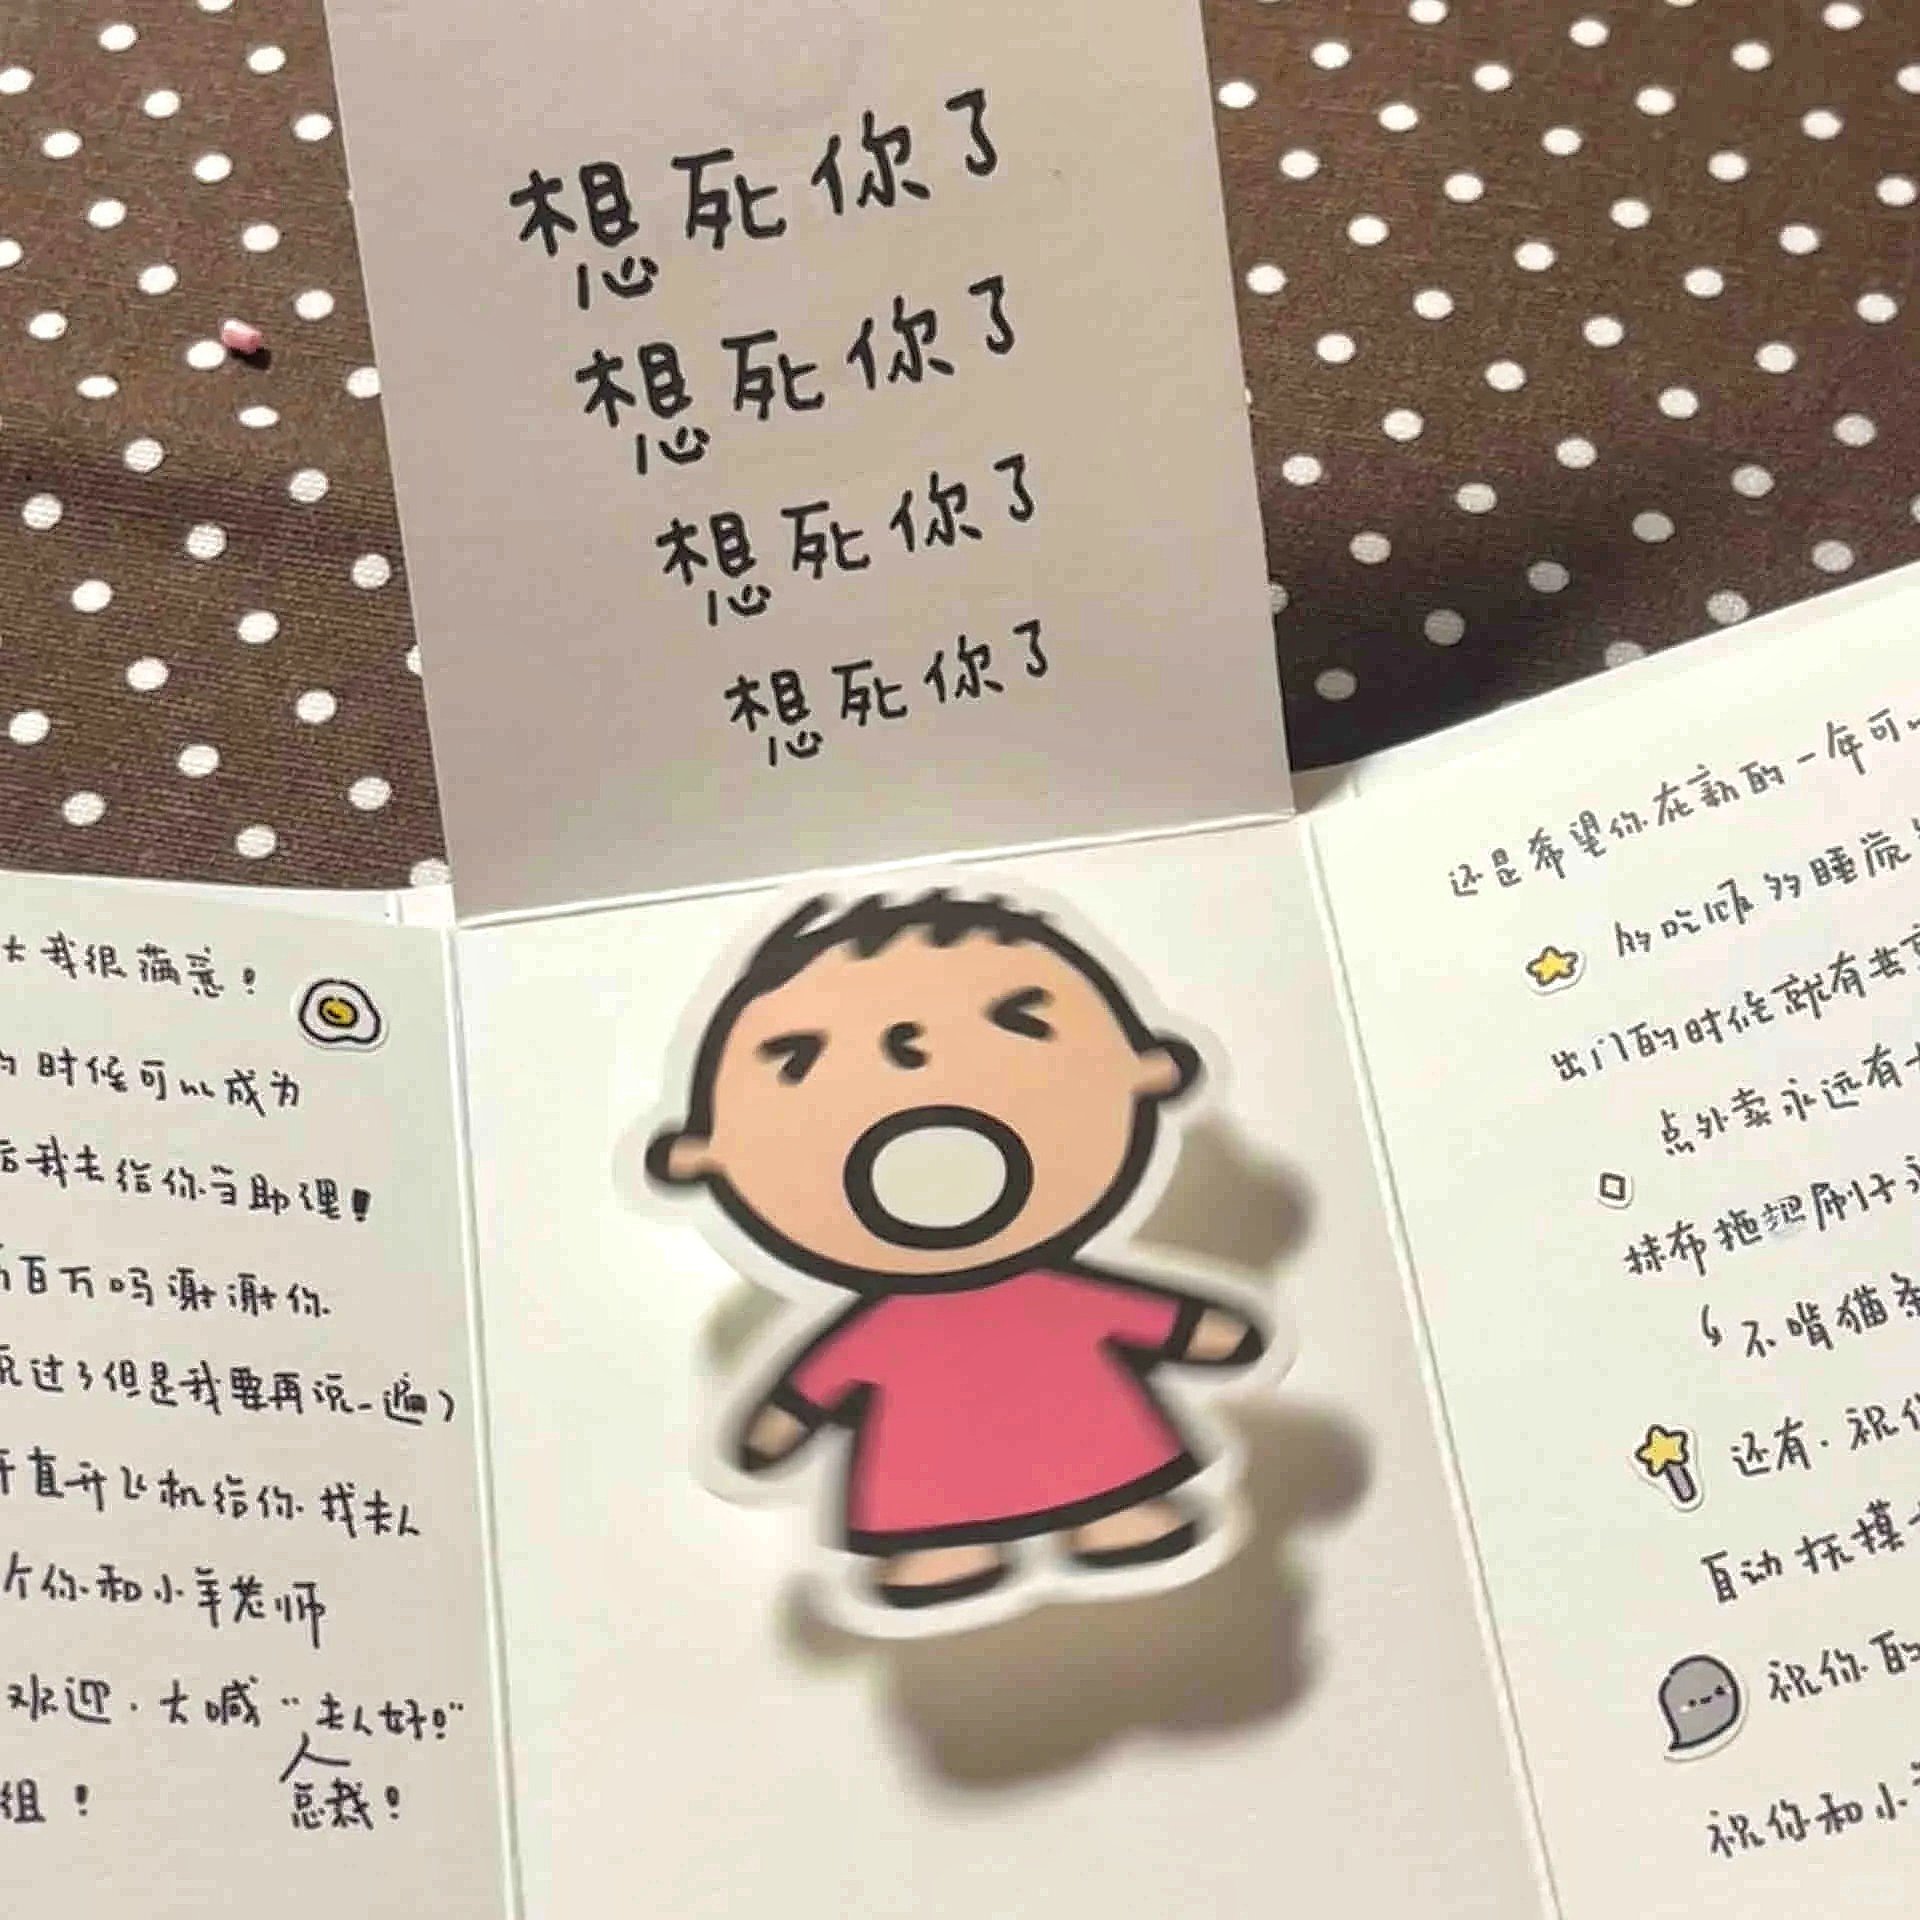 想死你了
想死你了
想死你了
想死你了
大我很满意！
的时候可以成为
后我去给你当助理！
百万吗谢谢你
说过了但是我要再说一遍）
开直升飞机给你找夫人
个你和小羊老师
欢迎．大喊“夫人好！”
总裁！
组！
还是希望你在新的一年可以
多吃饭多睡觉
出门的时候就有共享
点外卖永远有
抹布拖把刷子
不啃猫条
还有．祝你
自动抚摸
祝你的
祝你和小